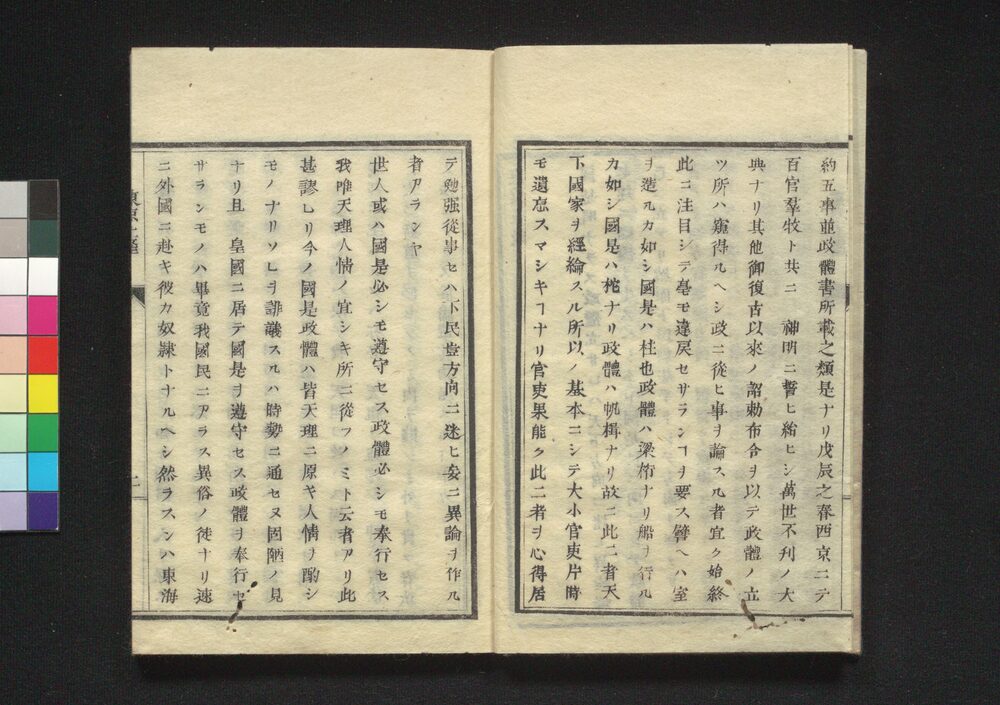 約五事並政體書所載之類是ナリ戊辰之春西京ニテ
百官羣牧ト共ニ　神明ニ誓ヒ給ヒシ萬世不刋ノ大
典ナリ其他御復古以來ノ詔勅布令ヲ以テ政體ノ立
ツ所ハ窺得ルヘシ政ニ從ヒ事ヲ論スル者宜ク始終
此ニ注目シテ毫モ違戻セサランヿヲ要ス譬ヘハ室
ヲ造ルカ如シ國是ハ柱也政體ハ梁桁ナリ船ヲ行ル
カ如シ國是ハ柁ナリ政體ハ帆楫ナリ故ニ此二者天
下國家ヲ經綸スル所以ノ基本ニシテ大小官吏片時
モ遺忘スマシキヿナリ官吏果能ク此二者ヲ心得居
テ勉强從事セハ下民豈方向ニ迷ヒ妄ニ異論ヲ作ル
者アランヤ
世人或ハ國是必シモ遵守セス政體必シモ奉行セス
我唯天理人情ノ宜シキ所ニ從フノミト云者アリ此
甚謬レリ今ノ國是政體ハ皆天理ニ原キ人情ヲ酌シ
モノナリソレヲ誹議スルハ時勢ニ通セヌ固陋ノ見
ナリ且　皇國ニ居テ國是ヲ遵守セス政體ヲ奉行セ
サランモノハ畢竟我國民ニアラス異俗ノ徒ナリ速
ニ外國ニ赴キ彼カ奴隷トナルヘシ然ラスンハ東海